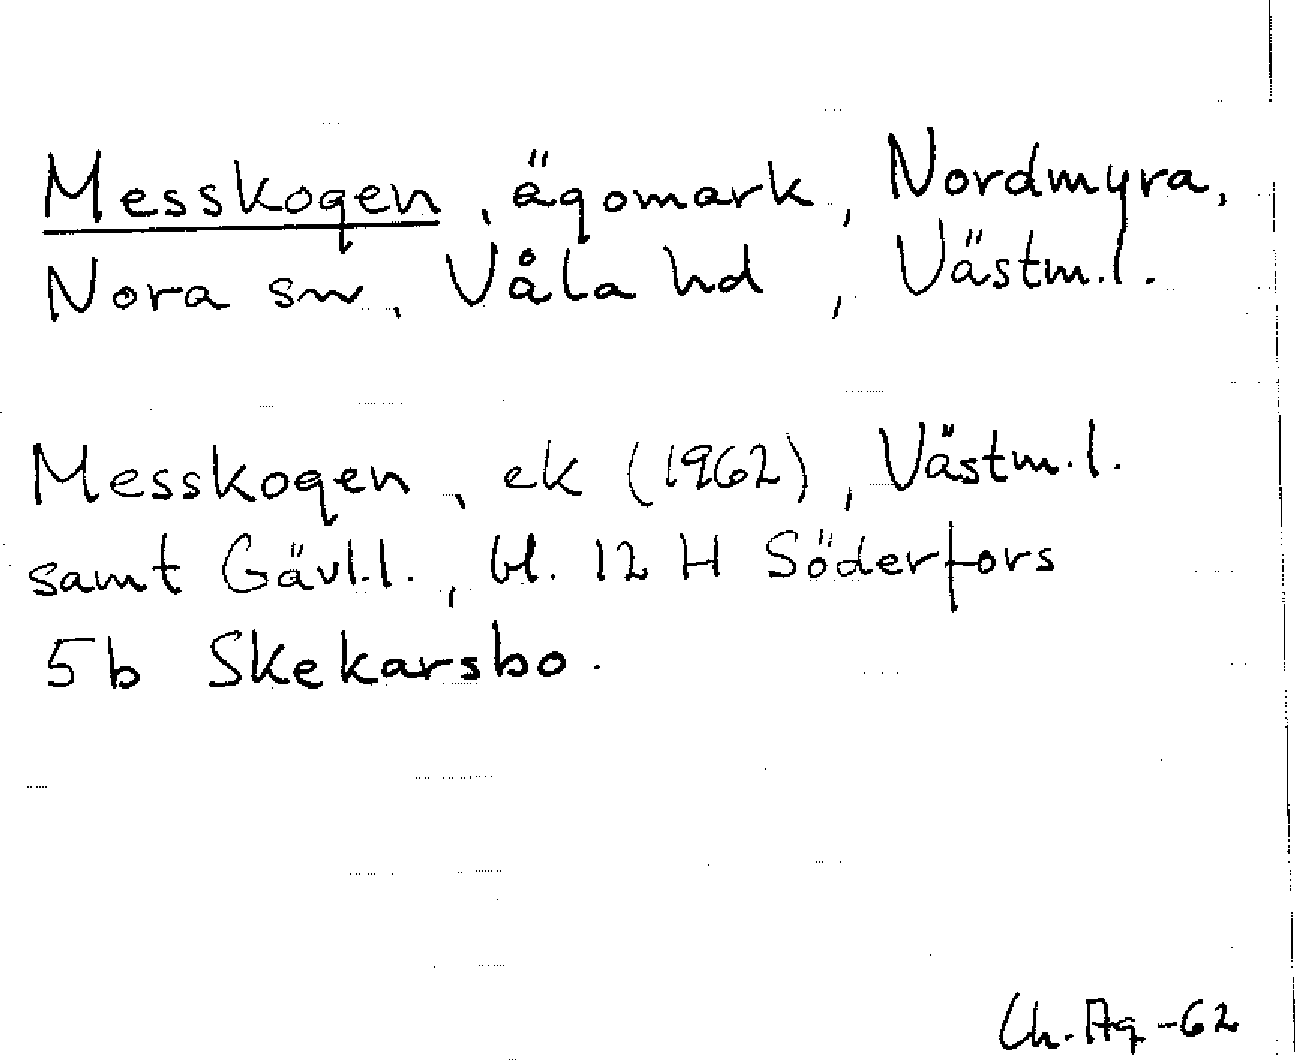 Messkogen, ägomark, Nordmyra,
Nora sn, Våla hd, Västm.l.
Messkogen, ek (1962), Västm.l.
samt Gävl.l., bl. 12 H Söderfors
5b Skekarsbo.
Ch. Ag -62